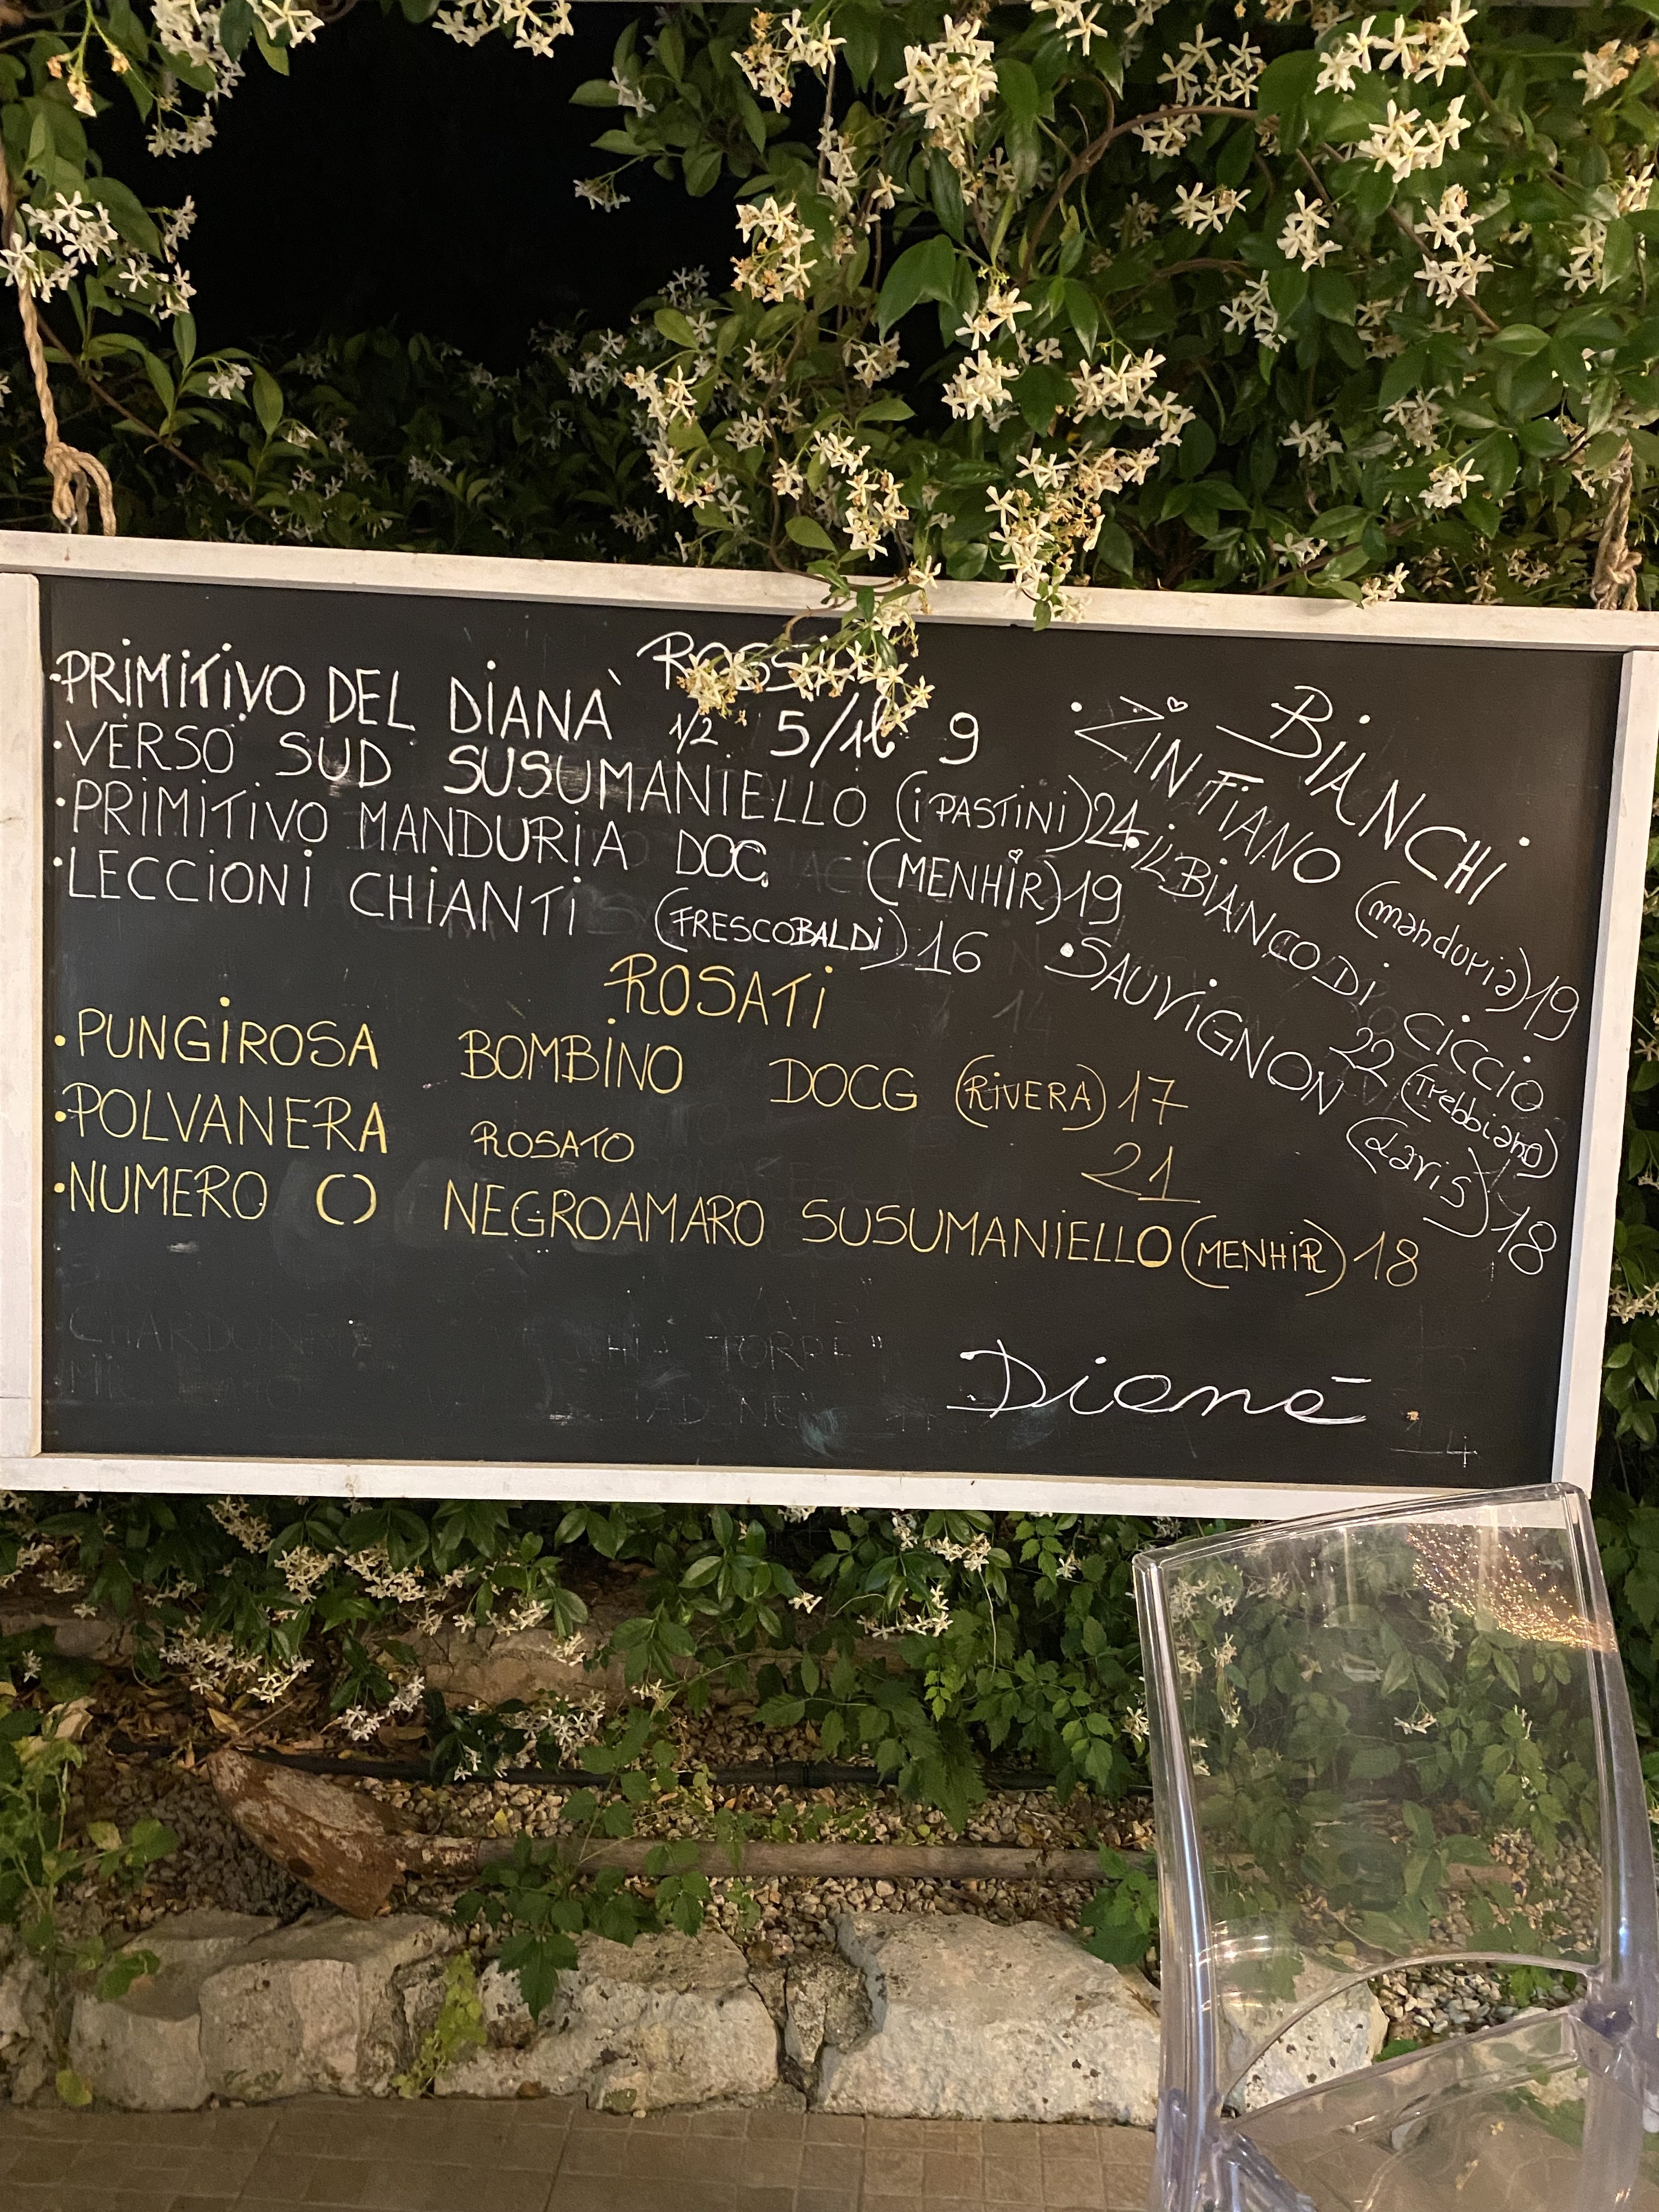 ROSSI
·PRIMITIVO DEL DIANÀ 1/2 5/1l 9
·VERSO SUD SUSUMANIELLO (I PASTINI) 24
·PRIMITIVO MANDURIA DOC (MENHIR) 19
·LECCIONI CHIANTI (FRESCOBALDI) 16
ROSATI
·PUNGIROSA BOMBINO DOCG (RIVERA) 17
·POLVANERA ROSATO 21
·NUMERO O NEGROAMARO SUSUMANIELLO (MENHIR) 18
BIANCHI
·ZIN FIANO (manduria) 19
·IL BIANCO DI CICCIO
22 (Trebbiano)
·SAUVIGNON (Lavis) 18
Dianà